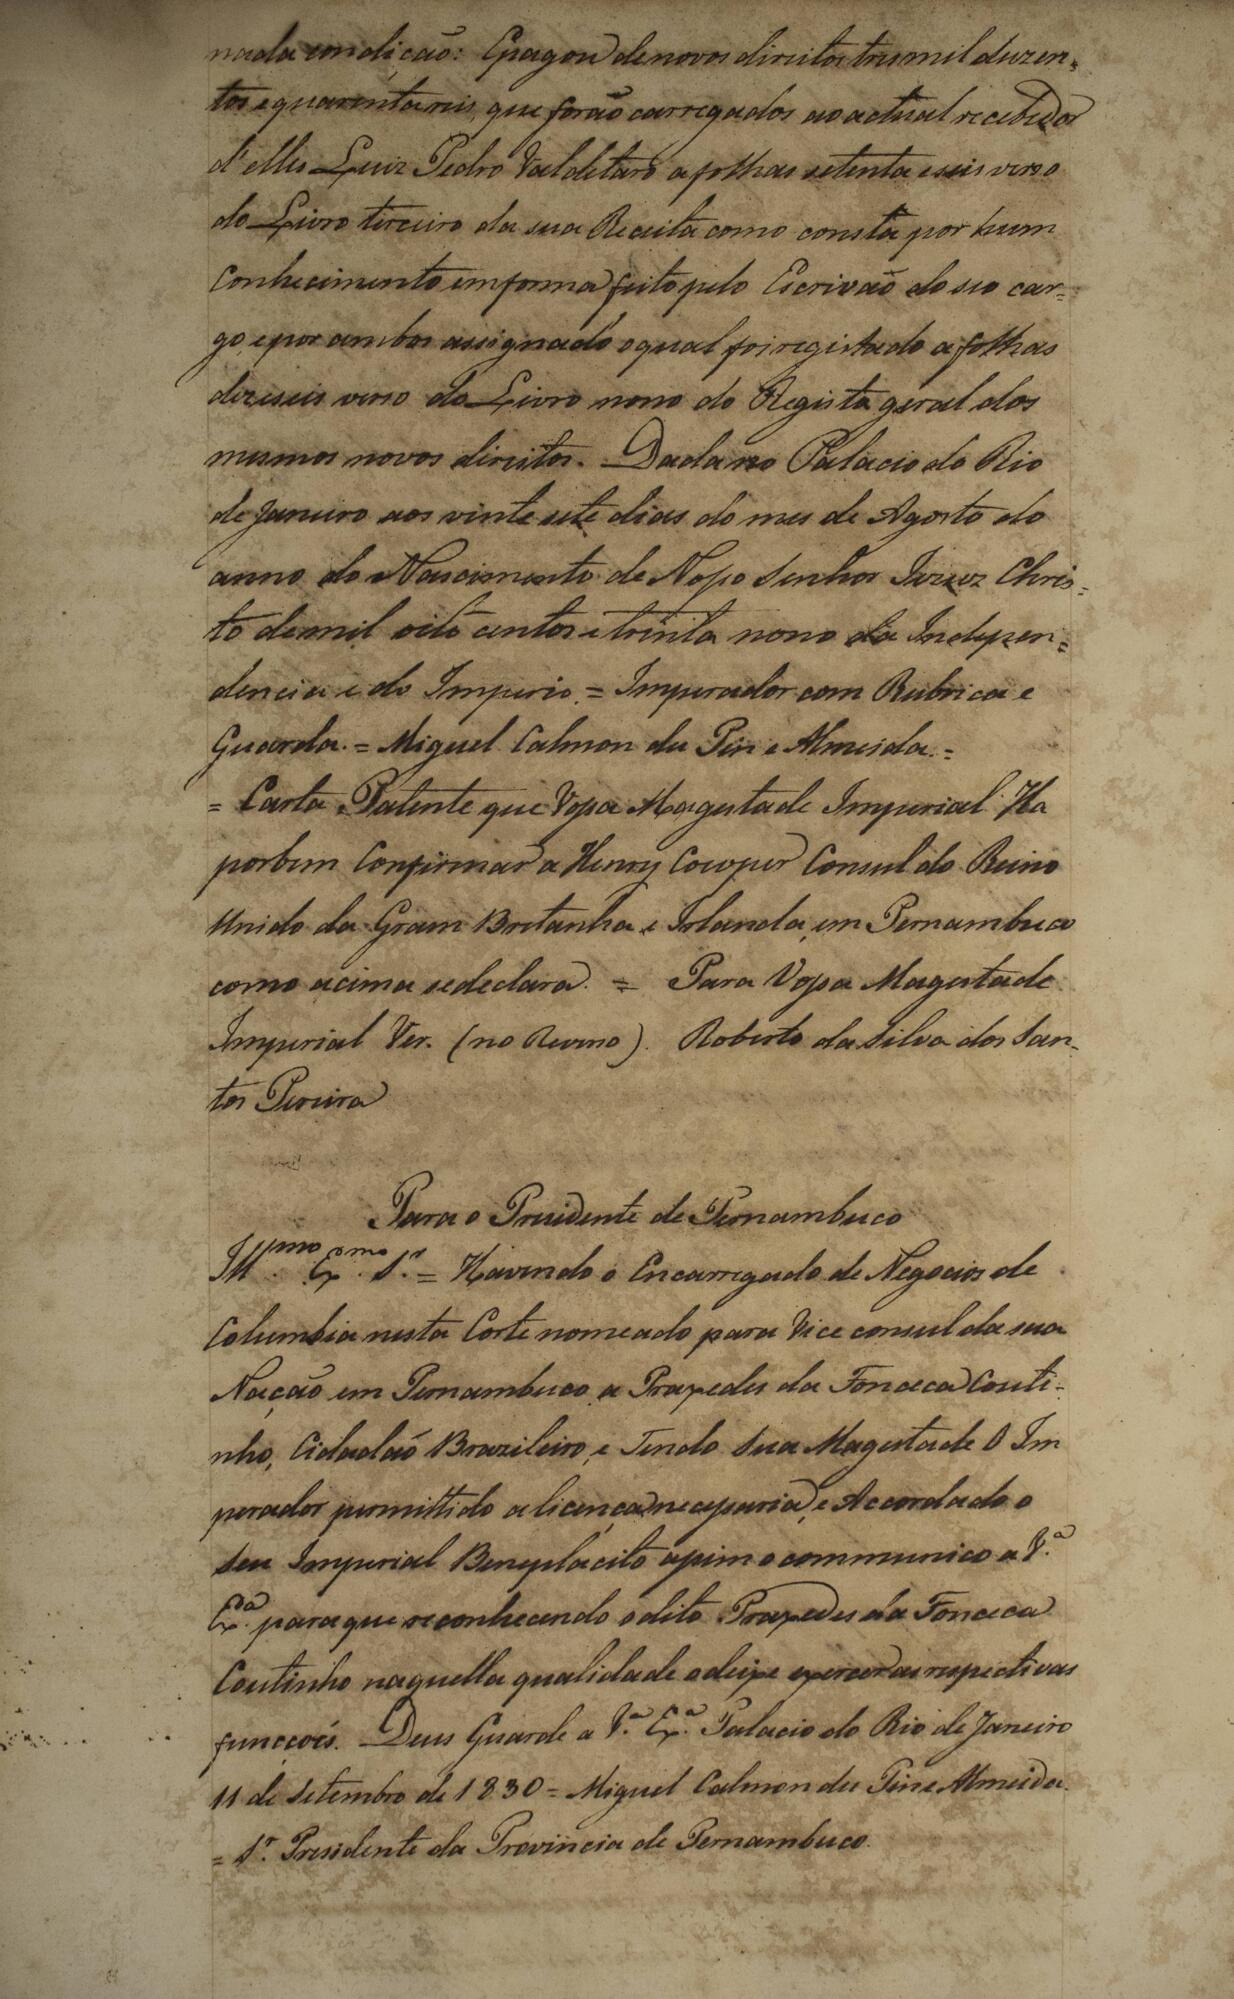 nada condição: Epagou de novos direitos tres mil duzen=
tos e quarenta reis, que forão carregados ao actual recebedor
d'elles Luiz Pedro Valdetaro a folhas setenta e seis verso
do Livro terceiro da sua Receita como consta por hum
Conhecimento em forma feito pelo Escrivão do seo car=
go, e por ambos assignado o qual foi registado a folhas
dezeseis verso do Livro nono do Registo geral dos
mesmos novos direitos. Dada no Palacio do Rio
de Janeiro aos vinte sete dias do mes de Agosto do
anno do Nascimento de Nosso Senhor Jezuz Chris=
to de mil oito centos e trinta nono da Indepen=
dencia e do Imperio. = Imperador com Rubrica e
Guarda. = Miguel Calmon du Pin e Almeida. =
= Carta Patente que Vossa Magestade Imperial Ha
por bem Confirmar a Henry Cowper Consul do Reino
Unido da Gram Bretanha e Irlanda, em Pernambuco
como acima se declara. = Para Vossa Magestade
Imperial Ver. (no Reverso). Roberto da Silva dos San-
tos Pereira
Para o Presidente de Pernambuco
Illmo. Exmo. Sr. = Havendo o Encarregado de Negocios de
Columbia nesta Corte nomeado para Vice consul da sua
Nação em Pernambuco a Praxedes da Fonceca Couti-
nho, Cidadão Brazileiro, e Tendo Sua Magestade O Im
perador permittido a licença necessaria, e Accordado o
Seu Imperial Beneplacito assim o communico a V.ª
Exª. para que reconhecendo o dito Praxedes da Fonceca
Coutinho naquella qualidade o deixe exercer as respectivas
funcções. Deus Guarde a V.ª Ex.ª Palacio do Rio de Janeiro
11 de Setembro de 1830 = Miguel Calmon du Pin e Almeida.
= Sr. Presidente da Provincia de Pernambuco.